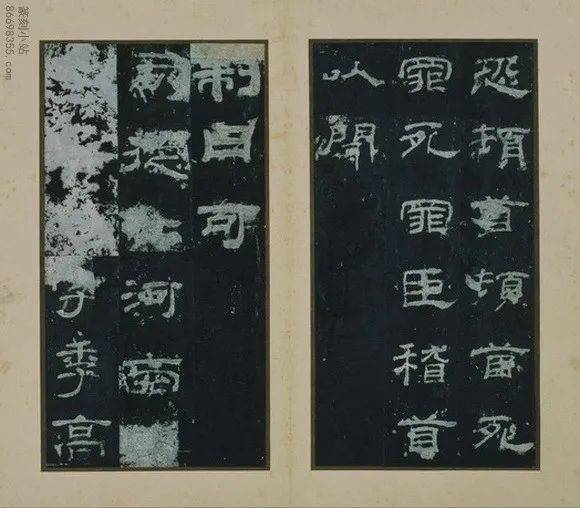 恐頓首頓首死
罪死罪臣稽首
以聞
制曰可
司徒公河南
字季高
篆刻小站
86698355.com